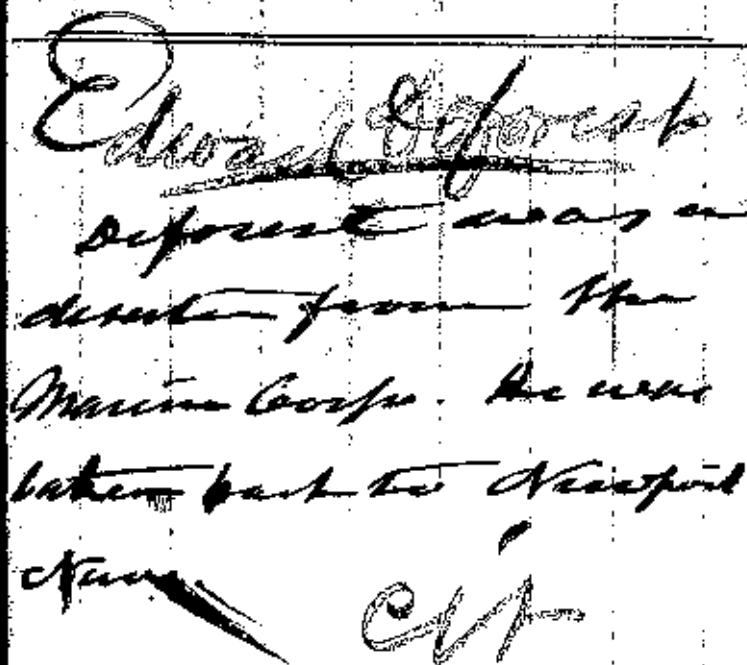 Edward Deforest
Deforest was a
deserter from the
Marine Corps. He was
taken back to Newport
News.